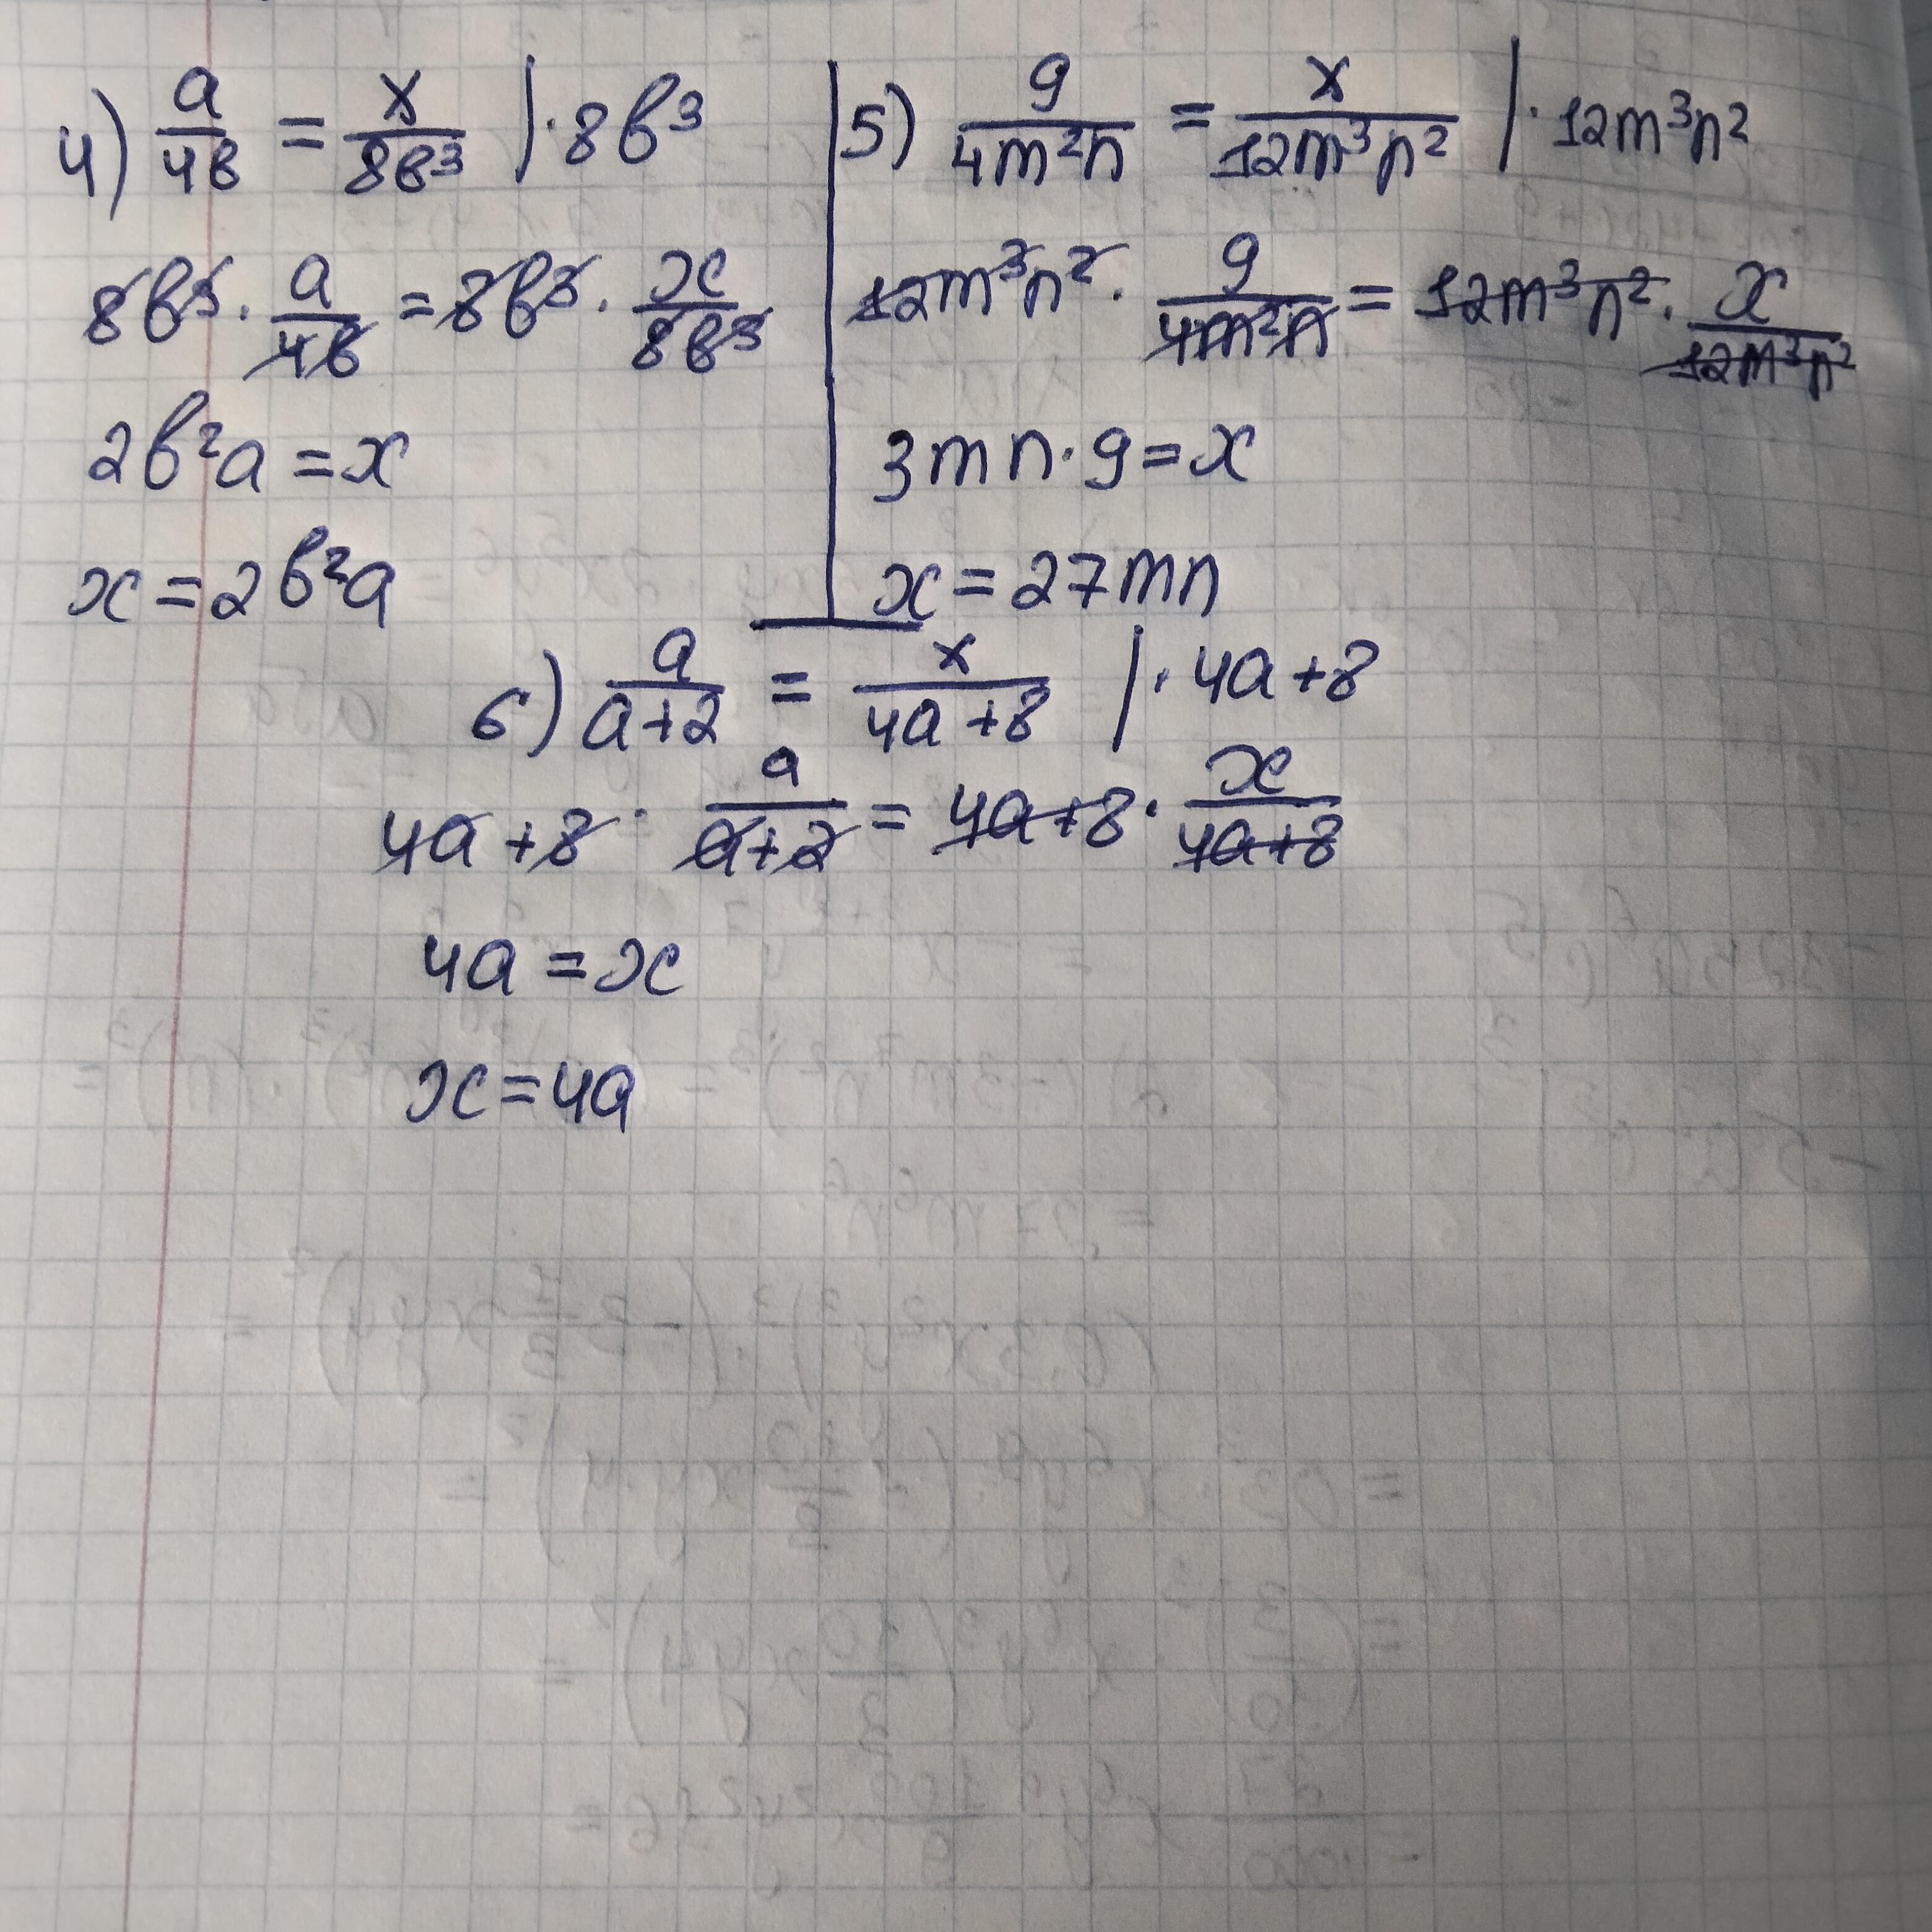 4) a/4в = x/8в³ | · 8в³
8в³ · a/4в = 8в³ · x/8в³
2в²a = x
x = 2в²a
5) 9/4m²n = x/12m³n² | · 12m³n²
12m³n² · 9/4m²n = 12m³n² · x/12m³n²
3mn · 9 = x
x = 27mn
6) a/a+2 = x/4a+8 | · 4a+8
4a+8 · a/a+2 = 4a+8 · x/4a+8
4a = x
x = 4a